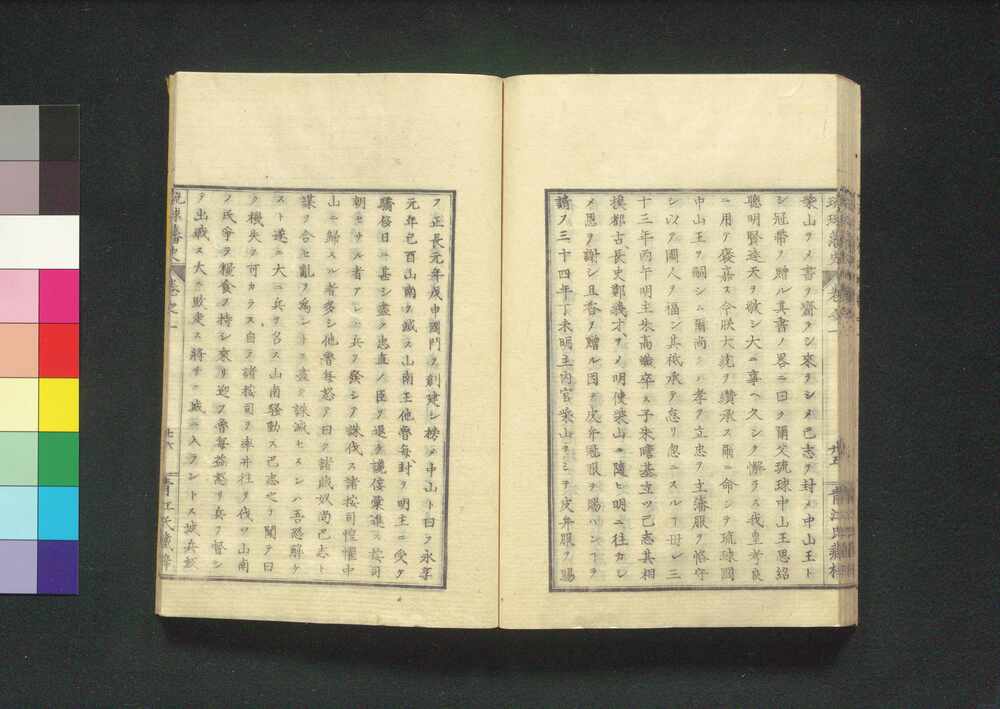 琉球藩史 卷之一
廿五 青江氏藏梓
柴山ヲノ書ヲ齎シ來ラシメ巴志ヲ封メ中山王ト
シ冠帶ヲ贈ル其書ノ畧ニ曰ク爾父琉球中山王思紹
聰明賢達天ヲ敬シ大ニ事ヘ久シク懈ラス我皇考良
ニ用テ褒嘉ス今朕大統ヲ纘承ス爾ニ命シテ琉球國
中山王ヲ嗣シム爾尚シ孝ヲ立忠ヲ土藩服ヲ恪守
シ以テ國人ヲ福シ其祗承ヲ怠リ忽ニスルヿ毋レ三
十三年丙午明主朱高熾卒ス子朱瞻基立ツ巴志其相
摸都古長史鄭義才ヲノ明使柴山ニ隨ヒ明ニ往カシ
メ恩ヲ謝シ且香ヲ贈ル因テ皮弁冠服ヲ賜ハンヿヲ
請フ三十四年丁未明主内官柴山ヲシテ皮弁服ヲ賜
フ正長元年戊申國門ヲ創建シ榜メ中山ト曰フ永享
元年己酉山南ヲ滅ス山南王他魯每封ヲ明主ニ受ケ
驕傲日ニ甚シ盡ク忠直ノ臣ヲ退ケ讒侫彙進ス按司
朝セサル者アレハ兵ヲ發シテ誅伐ス諸按司惶懼中
山ニ歸スル者多シ他魯每怒テ曰ク諸賊奴尚巴志ト
謀ヲ合セ亂ヲ爲シトス盡ク誅滅セスンハ吾恐解ケ
スト遂ニ大ニ兵ヲ召ス山南騷動ス巴志之ヲ聞テ曰
ク機失フ可カラス自ラ諸按司ヲ率井往テ伐ツ山南
ノ民爭テ糧食ヲ持シ來リ迎フ魯每益怒リ兵ヲ督シ
テ出戰ス大ニ敗走ス將ニ城ニ入ラントス城兵
琉球藩史 卷之一
廿六 青江氏藏梓